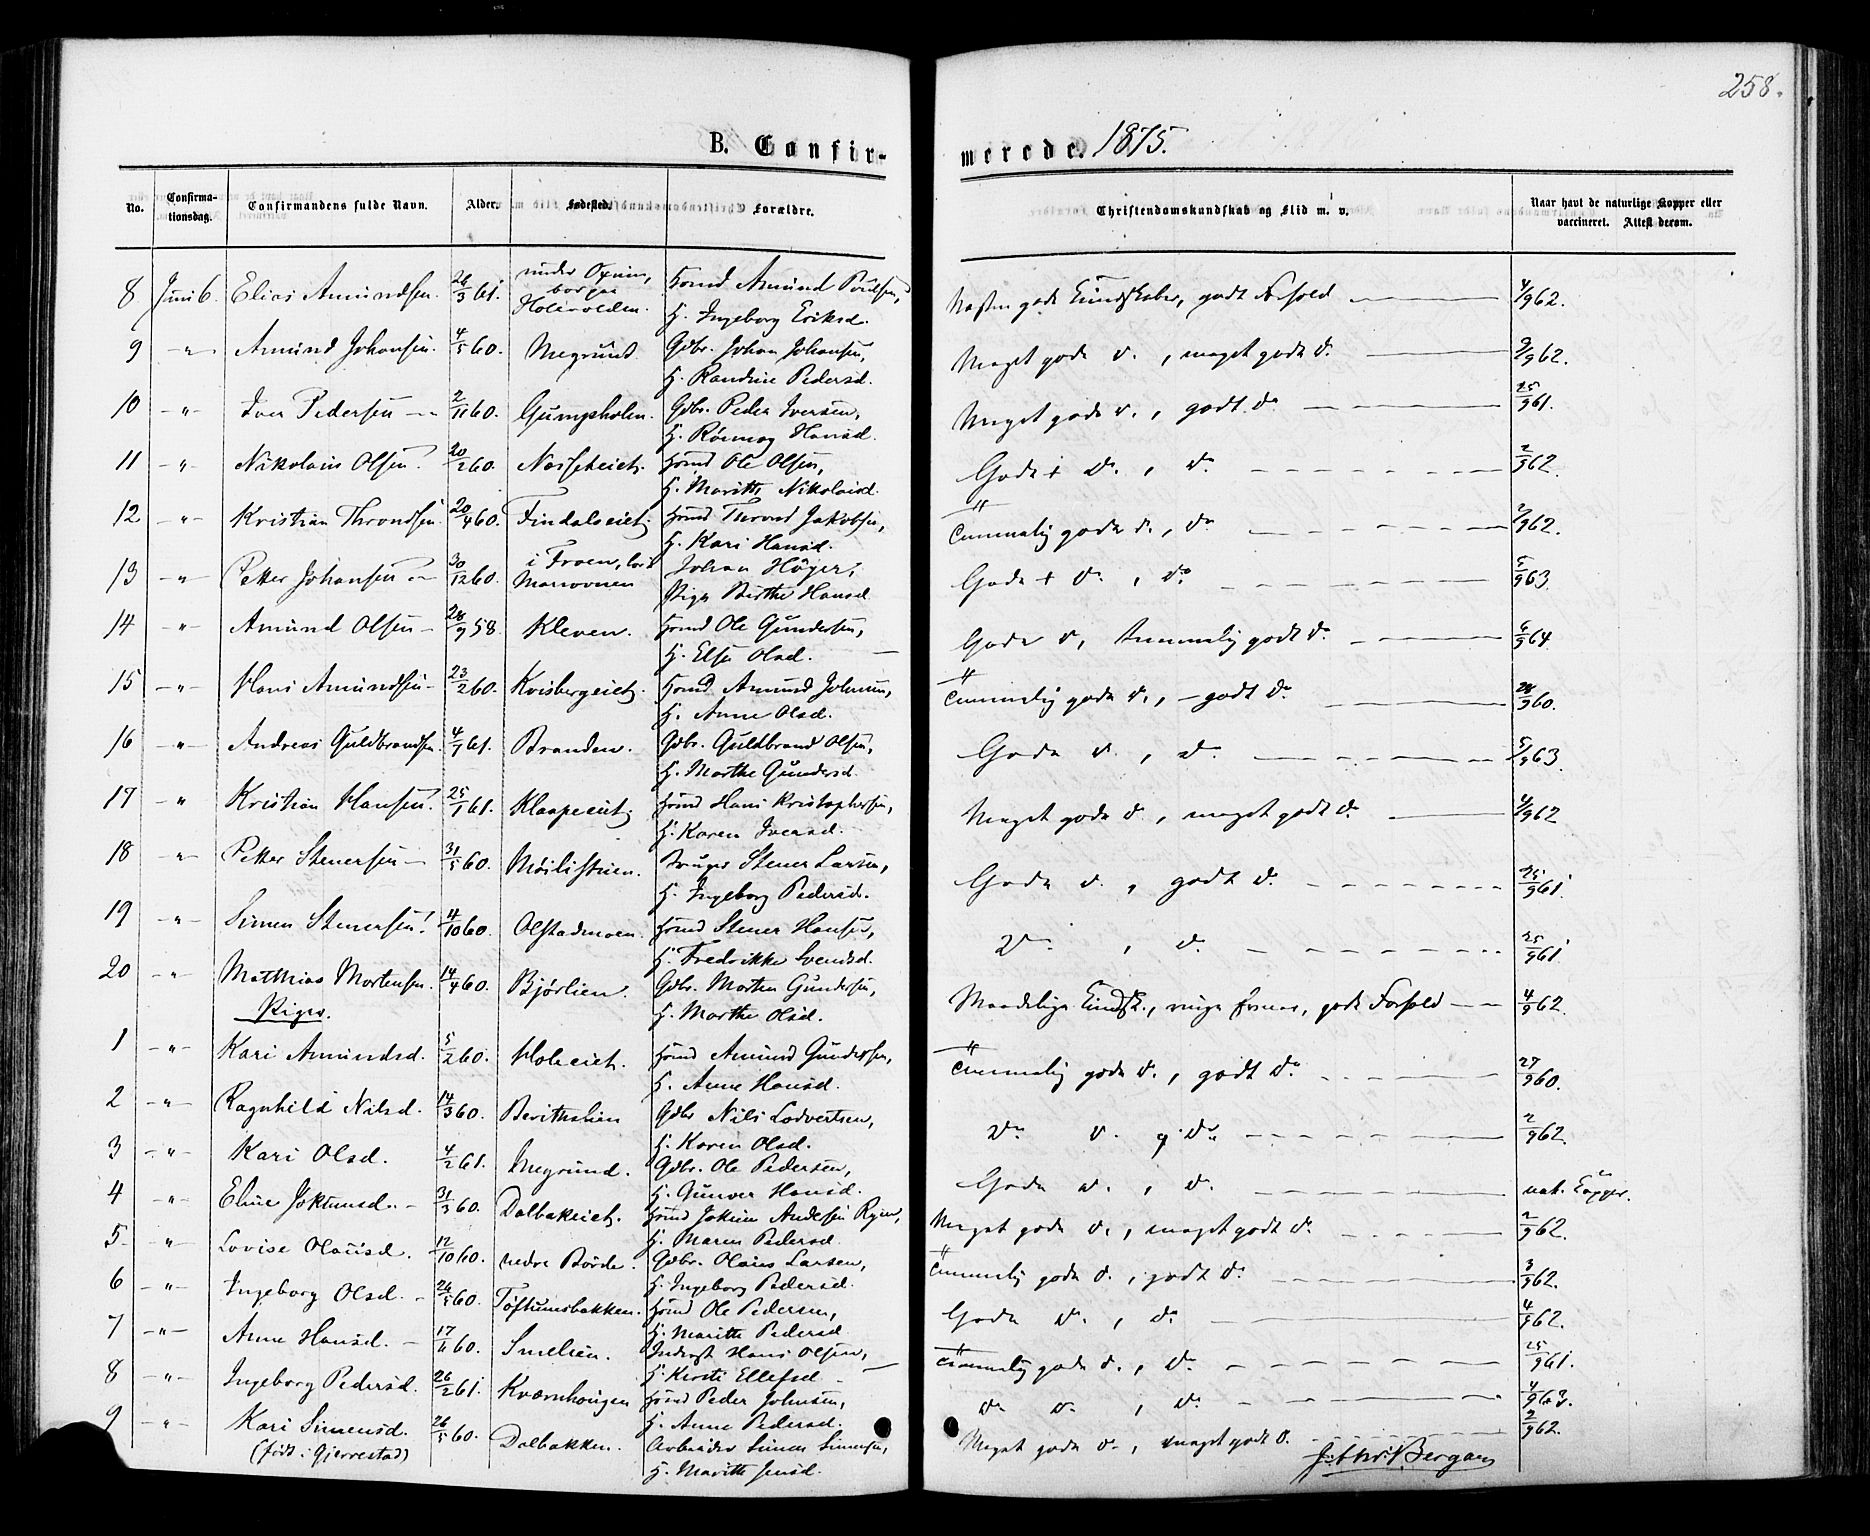 258.
B. Confir-
merede. 1875.
No.
Confirma-
tionsdag.
Confirmandens fulde Navn.
Alder.
Fødested.
Forældre.
Christendomskundskab og Flid m. v.
Naar havt de naturlige Kopper eller
vaccineret. Attest derom.
8 Juni 6. Elias Amundsen. 26/3 61. under
Holsvolden. Hmd Amund Poulsen,
H. Ingeborg Eriksd. Næsten gode Kundskaber, godt Forhold 4/9 62.
9 -"- Amund Johansen. 4/5 60. Megrund. Gdbr. Johan Johansen,
H. Randine Pedersd. Meget gode d., meget godt do 9/9 62.
10 -"- Iver Pedersen 2/11 60. Gumpholen. Gdbr. Peder Iversen,
H. Rønnog Hansd. Meget gode d., godt do 25/9 61.
11 -"- Nikolais Olsen. 20/2 60. Hmd Ole Olsen,
H. Marithe Nikolaisd. Gode + d., do 2/9 62.
12 -"- Kristian Throndsen. 20/4 60. Findalseiet. Hmd Thrond Jakobsen,
H. Kari Hansd. Temmelig gode d., do 2/9 62.
13 -"- Petter Johansen 30/12 60. i Froen,
Johan Höyer,
Pige Birthe Hansd. Gode + d., do 5/9 63.
14 -"- Amund Olsen 28/9 58. Kleven. Hmd Ole Gundersen,
H. Else Olsd. Gode d, temmelig godt do 6/9 64.
15 -"- Hans Amundsen 23/2 60. Kvisbergeiet. Hmd Amund Johnsen,
H. Anne Olsd. Temmelig gode d., godt do 28/9 60.
16 -"- Andreas Guldbrandsen 4/1 61. Branden. Gdbr. Guldbrand Olsen,
H. Marthe Gundersd. Gode d., do 5/9 63.
17 -"- Kristian Hansen. 25/1 61. Klaapeeiet. Hmd Hans Kristophersen,
H. Karen Iversd. Meget gode d., meget godt do 4/9 62
18 -"- Petter Stenersen 31/5 60. Møilistuen. Bruger Stener Larsen,
H. Ingeborg Pedersd. Gode d., godt do 25/9 61
19 -"- Simen Stenersen! 4/10 60. Olstadmoen. Hmd Stener Hansen,
H. Fredrikke Svendsd. Do, do 25/9 61
20 -"- Matthias Mortensen. 14/4 60. Bjørlien. Gdbr. Morten Gundersen,
H. Marthe Olsd. Maadelige Kundsk., ringe Evner, godt Forhold 4/9 62.
Piger.
1 -"- Kari Amundsd. 5/2 60. Holeeiet. Hmd Amund Gundersen,
H. Anne Hansd. Temmelig gode d., godt do 27/9 60.
2 -"- Ragnhild Nilsd. 14/3 60. Berithslien Gdbr Nils Lodvertsen,
H. Karen Olsd. Do d. g. do 2/9 62.
3 -"- Kari Olsd. 4/2 61. Megrund. Gdbr. Ole Pedersen,
H. Gunver Hansd. Gode d., do nat. Kopper.
4 -"- Eline Joktumsd. 31/3 60. Dalbakeiet. Hmd Andersen
H. Maren Pedersd. Meget gode d., meget godt do 2/9 62.
5 -"- Lovise Olausd. 12/10 60. nedre Børde. Gdbr. Olaus Larsen,
H. Ingeborg Pedersd. Temmelig gode d., godt do 3/9 62.
6 -"- Ingeborg Olsd. 26/5 60. Töftumsbakken. Hmd Ole Pedersen,
H. Marithe Pedersd Gode d., do 4/9 62.
7 -"- Anne Hansd. 17/11 60. Smelien. Inderst Hans Olsen,
H. Kirsti Ellefsd Temmelig gode d., do 25/9 61.
8 -"- Ingeborg Pedersd. 26/2 61. Kværnhougen Hmd Peder Johnsen,
H. Anne Pedersd. do d., do 4/9 63.
9 -"- Kari Simensd. 26/5 60. Dalbakken. Arbeider Simen Simensen,
(født i Gjerrestad) H. Marithe Jensd. Meget gode d., meget godt d. 2/9 62.
J. Chr. Bergan